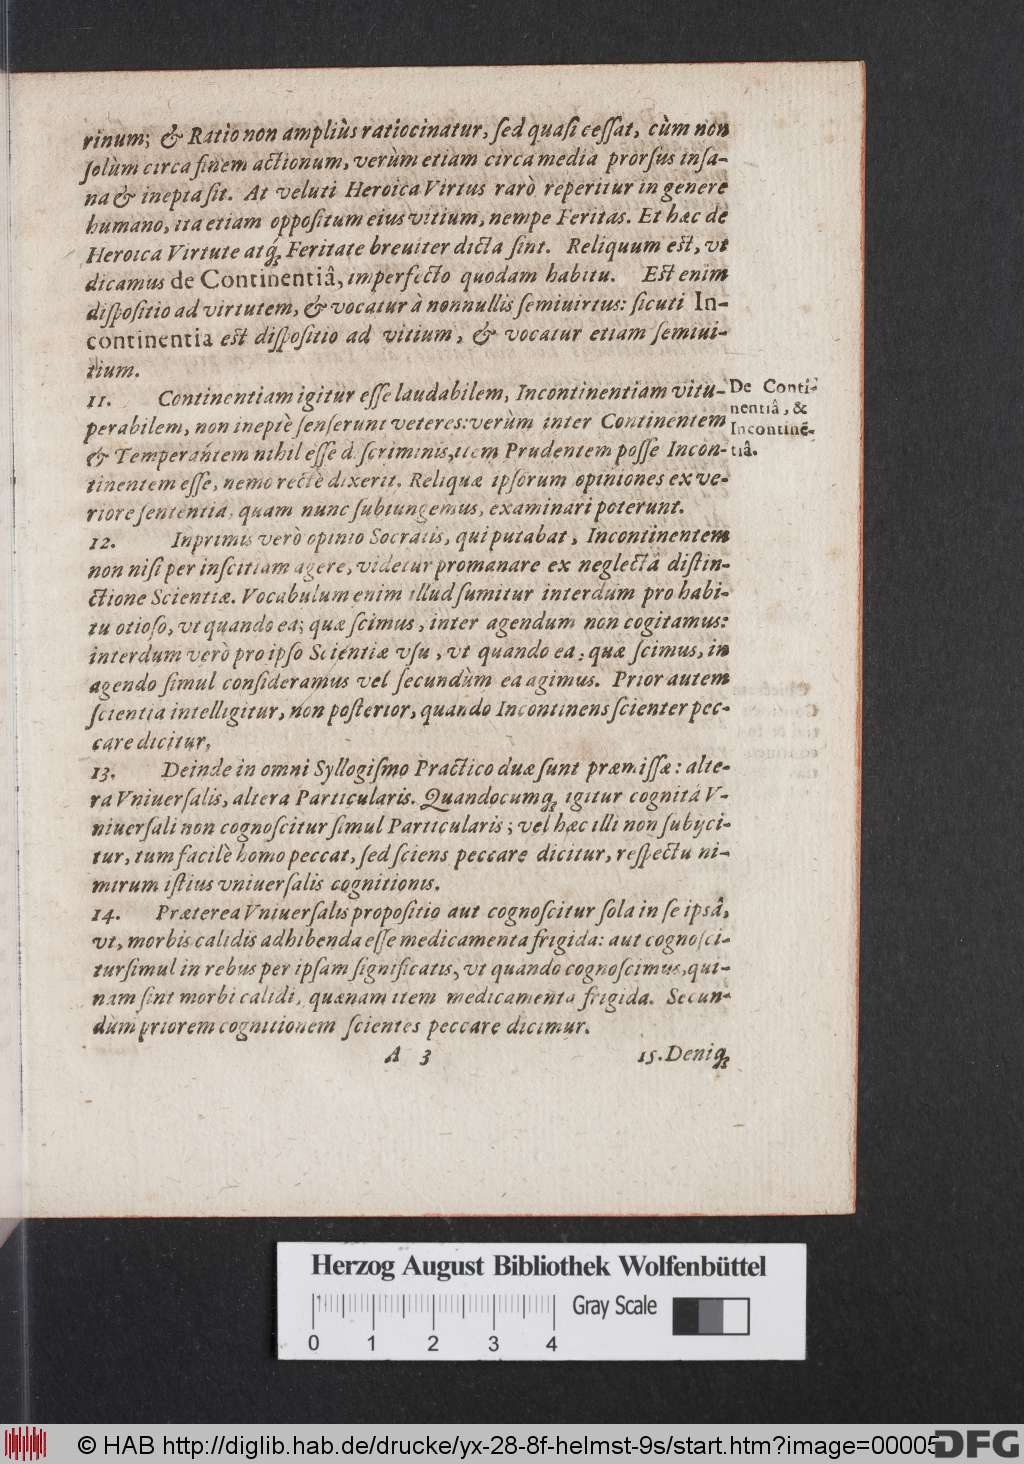 rinum; & Ratio non ampliùs ratiocinatur, ſed quaſi ceſſat, cùm non
ſolùm circa finem actionum, verùm etiam circa media prorſus inſa-
na & inepta ſit. At veluti Heroica Virtus rarò reperitur in genere
humano, ita etiam oppoſitum eius vitium, nempe Feritas. Et hæc de
Heroica Virtute atq́; Feritate breuiter dicta ſint. Reliquum eſt, vt
dicamus de Continentiâ, imperfecto quodam habitu. Eſt enim
diſpoſitio ad virtutem, & vocatur à nonnullis ſemiuirtus: ſicuti In-
continentia eſt diſpoſitio ad vitium, & vocatur etiam ſemiui-
tium.
11. Continentiam igitur eſſe laudabilem, Incontinentiam vitu-
perabilem, non ineptè ſenſerunt veteres: verùm inter Continentem
& Temperantem nihil eſſe d ſcriminis, item Prudentem poſſe Incon-
tinentem eſſe, nemo rectè dixerit. Reliquæ ipſorum opiniones ex ve-
riore ſententia, quam nunc ſubiungemus, examinari poterunt.
De Conti-
nentiâ, &
Incontinẽ-
tiâ.
12. Inprimis verò opinio Socratis, qui putabat, Incontinentem
non niſi per inſcitiam agere, videtur promanare ex neglectâ diſtin-
ctione Scientiæ. Vocabulum enim illud ſumitur interdum pro habi-
tu otioſo, vt quando ea; quæ ſcimus, inter agendum non cogitamus:
interdum verò pro ipſo Scientiæ vſu, vt quando ea; quæ ſcimus, in
agendo ſimul conſideramus vel ſecundùm ea agimus. Prior autem
ſcientia intelligitur, non poſterior, quando Incontinens ſcienter pec-
care dicitur,
13. Deinde in omni Syllogiſmo Practico duæ ſunt præmiſſæ: alte-
ra Vniuerſalis, altera Particularis. Quandocumq; igitur cognitâ V-
niuerſali non cognoſcitur ſimul Particularis; vel hæc illi non ſubijci-
tur, tum facilè homo peccat, ſed ſciens peccare dicitur, reſpectu ni-
mirum iſtius vniuerſalis cognitionis.
14. Præterea Vniuerſalis propoſitio aut cognoſcitur ſola in ſe ipsâ,
vt, morbis calidis adhibenda eſſe medicamenta frigida: aut cognoſci-
tur ſimul in rebus per ipſam ſignificatis, vt quando cognoſcimus, qui-
nam ſint morbi calidi, quænam item medicamenta frigida. Secun-
dùm priorem cognitionem ſcientes peccare dicimur.
A 3
15. Deniq;
Herzog August Bibliothek Wolfenbüttel
0 1 2 3 4
Gray Scale
© HAB http://diglib.hab.de/drucke/yx-28-8f-helmst-9s/start.htm?image=00005
DFG